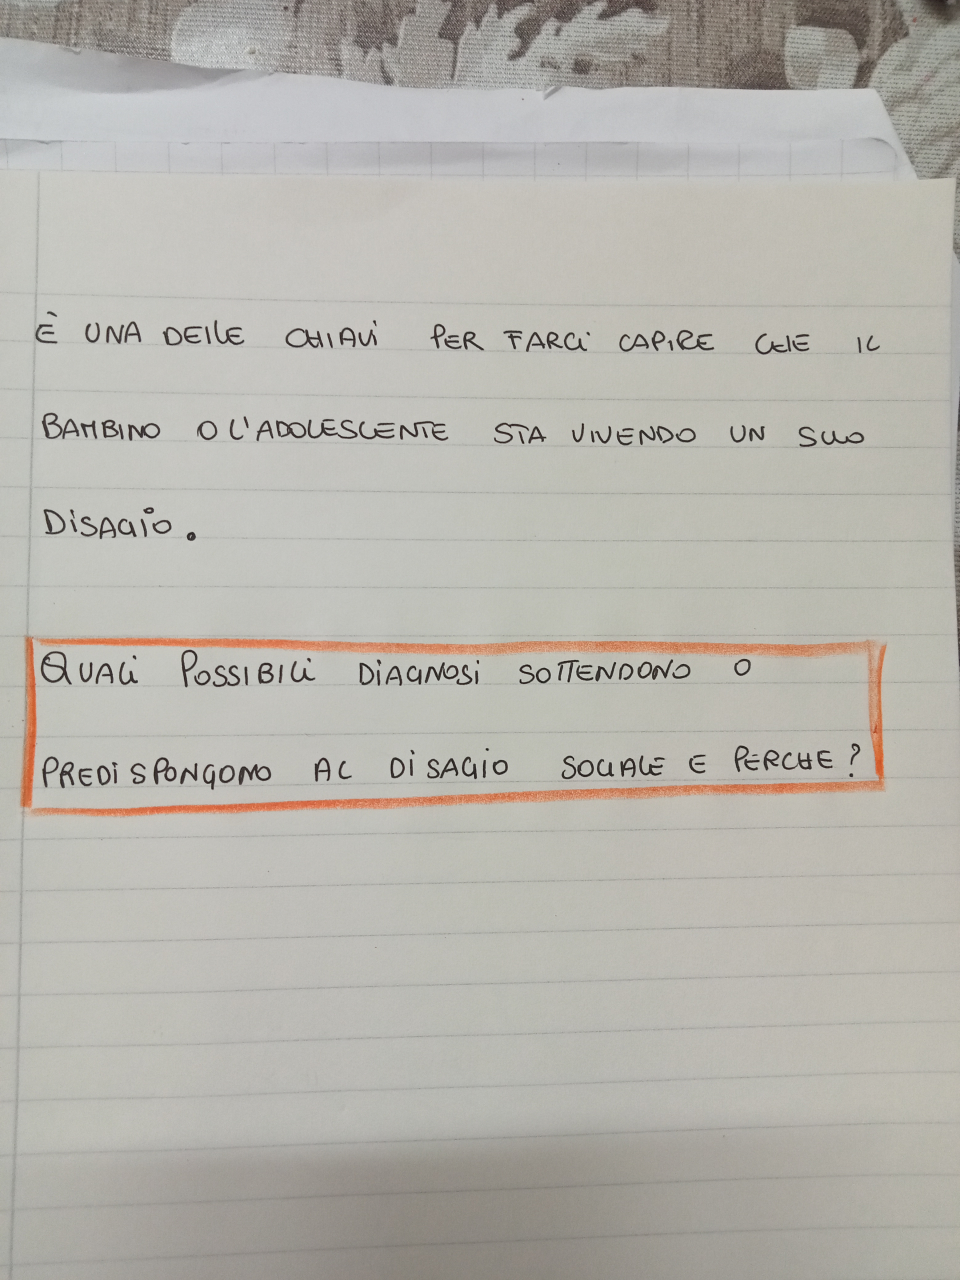 È UNA DELLE CHIAVI PER FARCI CAPIRE CHE IL
BAMBINO O L'ADOLESCENTE STA VIVENDO UN SUO
DISAGIO.
QUALI POSSIBILI DIAGNOSI SOTTENDONO O
PREDISPONGONO AL DISAGIO SOCIALE E PERCHE?